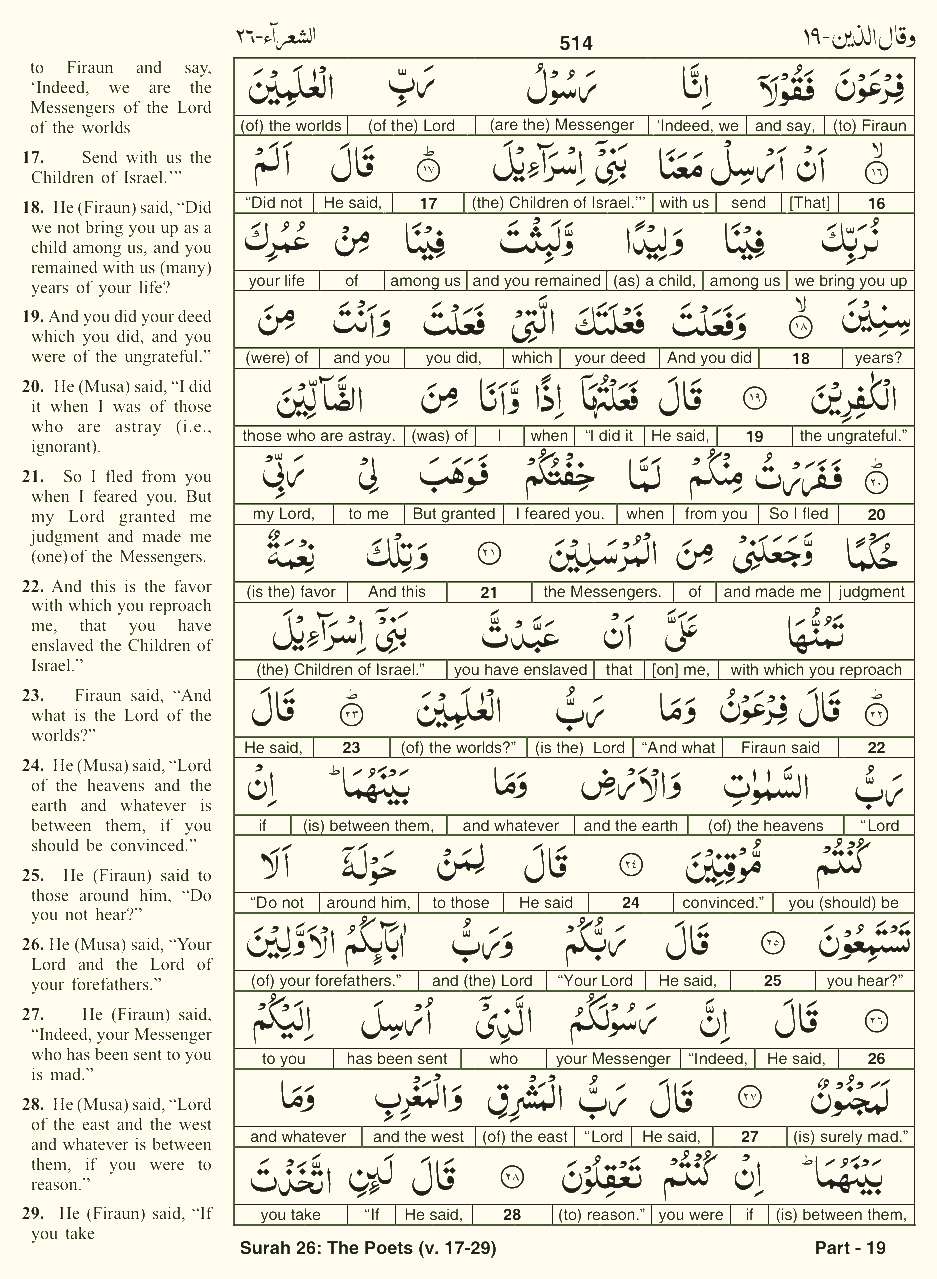 الشعرآء-٢٦ 514 وقال الذين-١٩
to Firaun and say,
‘Indeed, we are the
Messengers of the Lord
of the worlds
17. Send with us the
Children of Israel.’”
18. He (Firaun) said, “Did
we not bring you up as a
child among us, and you
remained with us (many)
years of your life?
19. And you did your deed
which you did, and you
were of the ungrateful.”
20. He (Musa) said, “I did
it when I was of those
who are astray (i.e.,
ignorant).
21. So I fled from you
when I feared you. But
my Lord granted me
judgment and made me
(one) of the Messengers.
22. And this is the favor
with which you reproach
me, that you have
enslaved the Children of
Israel.”
23. Firaun said, “And
what is the Lord of the
worlds?”
24. He (Musa) said, “Lord
of the heavens and the
earth and whatever is
between them, if you
should be convinced.”
25. He (Firaun) said to
those around him, “Do
you not hear?”
26. He (Musa) said, “Your
Lord and the Lord of
your forefathers.”
27. He (Firaun) said,
“Indeed, your Messenger
who has been sent to you
is mad.”
28. He (Musa) said, “Lord
of the east and the west
and whatever is between
them, if you were to
reason.”
29. He (Firaun) said, “If
you take
فِرْعَوْنَ فَقُوْلَاۤ اِنَّا رَسُوْلُ رَبِّ الْعٰلَمِيْنَ
(of) the worlds (of the) Lord (are the) Messenger ‘Indeed, we and say, (to) Firaun
ۙ‏١٦ اَنْ اَرْسِلْ مَعَنَا بَنِيْۤ اِسْرَآءِيْلَ ؕ‏١٧ قَالَ اَلَمْ
“Did not He said, 17 (the) Children of Israel.’” with us send [That] 16
نُرَبِّكَ فِيْنَا وَلِيْدًا وَّلَبِثْتَ فِيْنَا مِنْ عُمُرِكَ
your life of among us and you remained (as) a child, among us we bring you up
سِنِيْنَ ۙ‏١٨ وَفَعَلْتَ فَعْلَتَكَ الَّتِيْ فَعَلْتَ وَاَنْتَ مِنَ
(were) of and you you did, which your deed And you did 18 years?
الْكٰفِرِيْنَ ١٩ قَالَ فَعَلْتُهَاۤ اِذًا وَّاَنَا مِنَ الضَّآلِّيْنَ
those who are astray. (was) of I when “I did it He said, 19 the ungrateful.”
ؕ‏٢٠ فَفَرَرْتُ مِنْكُمْ لَمَّا خِفْتُكُمْ فَوَهَبَ لِيْ رَبِّيْ
my Lord, to me But granted I feared you. when from you So I fled 20
حُكْمًا وَّجَعَلَنِيْ مِنَ الْمُرْسَلِيْنَ ٢١ وَتِلْكَ نِعْمَةٌ
(is the) favor And this 21 the Messengers. of and made me judgment
تَمُنُّهَا عَلَيَّ اَنْ عَبَّدْتَّ بَنِيْۤ اِسْرَآءِيْلَ
(the) Children of Israel.” you have enslaved that [on] me, with which you reproach
ؕ‏٢٢ قَالَ فِرْعَوْنُ وَمَا رَبُّ الْعٰلَمِيْنَ ؕ‏٢٣ قَالَ
He said, 23 (of) the worlds?” (is the) Lord “And what Firaun said 22
رَبُّ السَّمٰوٰتِ وَالْاَرْضِ وَمَا بَيْنَهُمَا ؕ اِنْ
if (is) between them, and whatever and the earth (of) the heavens “Lord
كُنْتُمْ مُّوْقِنِيْنَ ٢٤ قَالَ لِمَنْ حَوْلَهٗۤ اَلَا
“Do not around him, to those He said 24 convinced.” you (should) be
تَسْتَمِعُوْنَ ٢٥ قَالَ رَبُّكُمْ وَرَبُّ اٰبَآئِكُمُ الْاَوَّلِيْنَ
(of) your forefathers.” and (the) Lord “Your Lord He said, 25 you hear?”
٢٦ قَالَ اِنَّ رَسُوْلَكُمُ الَّذِيْۤ اُرْسِلَ اِلَيْكُمْ
to you has been sent who your Messenger “Indeed, He said, 26
لَمَجْنُوْنٌ ٢٧ قَالَ رَبُّ الْمَشْرِقِ وَالْمَغْرِبِ وَمَا
and whatever and the west (of) the east “Lord He said, 27 (is) surely mad.”
بَيْنَهُمَا ؕ اِنْ كُنْتُمْ تَعْقِلُوْنَ ٢٨ قَالَ لَئِنِ اتَّخَذْتَ
you take “If He said, 28 (to) reason.” you were if (is) between them,
Surah 26: The Poets (v. 17-29) Part - 19